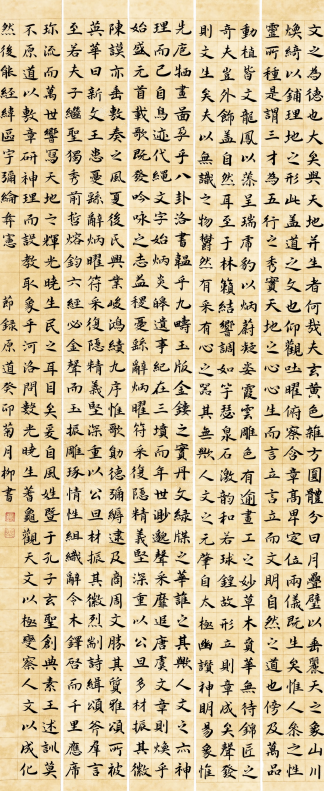 文之為德也大矣與天地並生者何哉夫玄黃色雜方圓體分日月疊璧以垂麗天之象山川
煥綺以鋪理地之形此蓋道之文也仰觀吐曜俯察含章高卑定位兩儀既生矣惟人參之性
靈所鍾是謂三才為五行之秀實天地之心心生而言立言立而文明自然之道也傍及萬品
動植皆文龍鳳以藻呈瑞虎豹以炳蔚凝姿雲霞雕色有逾畫工之妙草木賁華無待錦匠之
奇夫豈外飾蓋自然耳至于林籟結響調如竽瑟泉石激韻和若球鍠故形立則章成矣聲發
則文生矣夫以無識之物鬱然有采有心之器其無歟人文之元肇自太極幽讚神明易象惟
先庖犧畫孚乎八卦洛書韞乎九疇玉版金鏤之實丹文綠牒之華誰之其歟人文之六神
理而已自鳥跡代繩文字始炳炎皞遺事紀在三墳而年世渺邈聲采靡追唐虞文章則煥乎
始盛元首載歌既發吟詠之志益稷憂繇辭炳曜符采復隱精義堅深重以公旦多材振其
陳謨亦垂敷奏之風夏後氏興業峻鴻績九序惟歌勛德彌縟逮及商周文勝其質雅頌所被
英華曰新文王患憂繇辭炳曜符采復隱精義堅深重以公旦材振其徽烈剬詩緝頌斧群言
至若夫子繼聖獨秀前哲熔鈞六經必金聲而玉振雕琢情性組織辭令木鐸啓而千里應席
珍流而萬世響寫天地之輝光曉生民之耳目矣爰自風姓暨于孔子玄聖創典素王述訓莫
不原道以敷章研神理而設教取象乎河洛問數光曉生蓍龜觀天文以極變察人文以成化
然後能經緯區宇彌綸彝憲 節錄原道癸卯菊月柳書